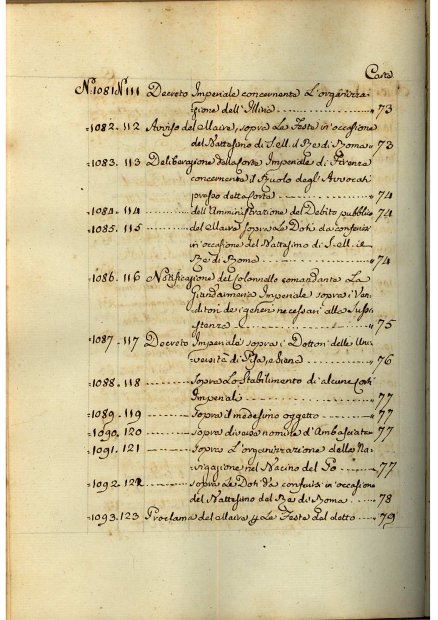 Carte
N.° 1081 N.° 111 Decreto Imperiale concernente L'organizza-
zione dell'Illiria " 73
=1082. 112 Avviso del Maire, sopra Le Feste in occasione
del Nattalino di S. E. Il Re di Roma " 73
=1083. 113 Deliberazione della Corte Imperiale di Firenze
concernente il Ruolo degli Avvocati
presso detta Corte " 74
=1084. 114 dell'Amministrazione del Debito pubblico " 74
=1085. 115 del Maire sopra Le Doti da conferirsi
in occasione del Nattalino di S. M. il
Re di Roma " 74
=1086. 116 Notificazione del Colonnello comandante La
Giandarmeria Imperiale sopra i Ven-
ditori de i generi necessari alla Sussi-
stenza " 75
=1087. 117 Decreto Imperiale sopra i Dottori delle Uni-
versità di Pisa, e Siena " 76
=1088. 118 Sopra Lo Stabilimento di alcune Corti
Imperiali " 77
=1089. 119 Sopra il medesimo oggetto " 77
=1090. 120 sopra diverse nomine d'Ambasciator " 77
=1091. 121 sopra L'organizzazione della Na-
vigazione nel Bacino del Po " 77
=1092. 122 sopra Le Doti da conferirsi in occasione
del Nattalino del Re di Roma 78
=1093. 123 Proclama del Maire p Le Feste del detto " 79